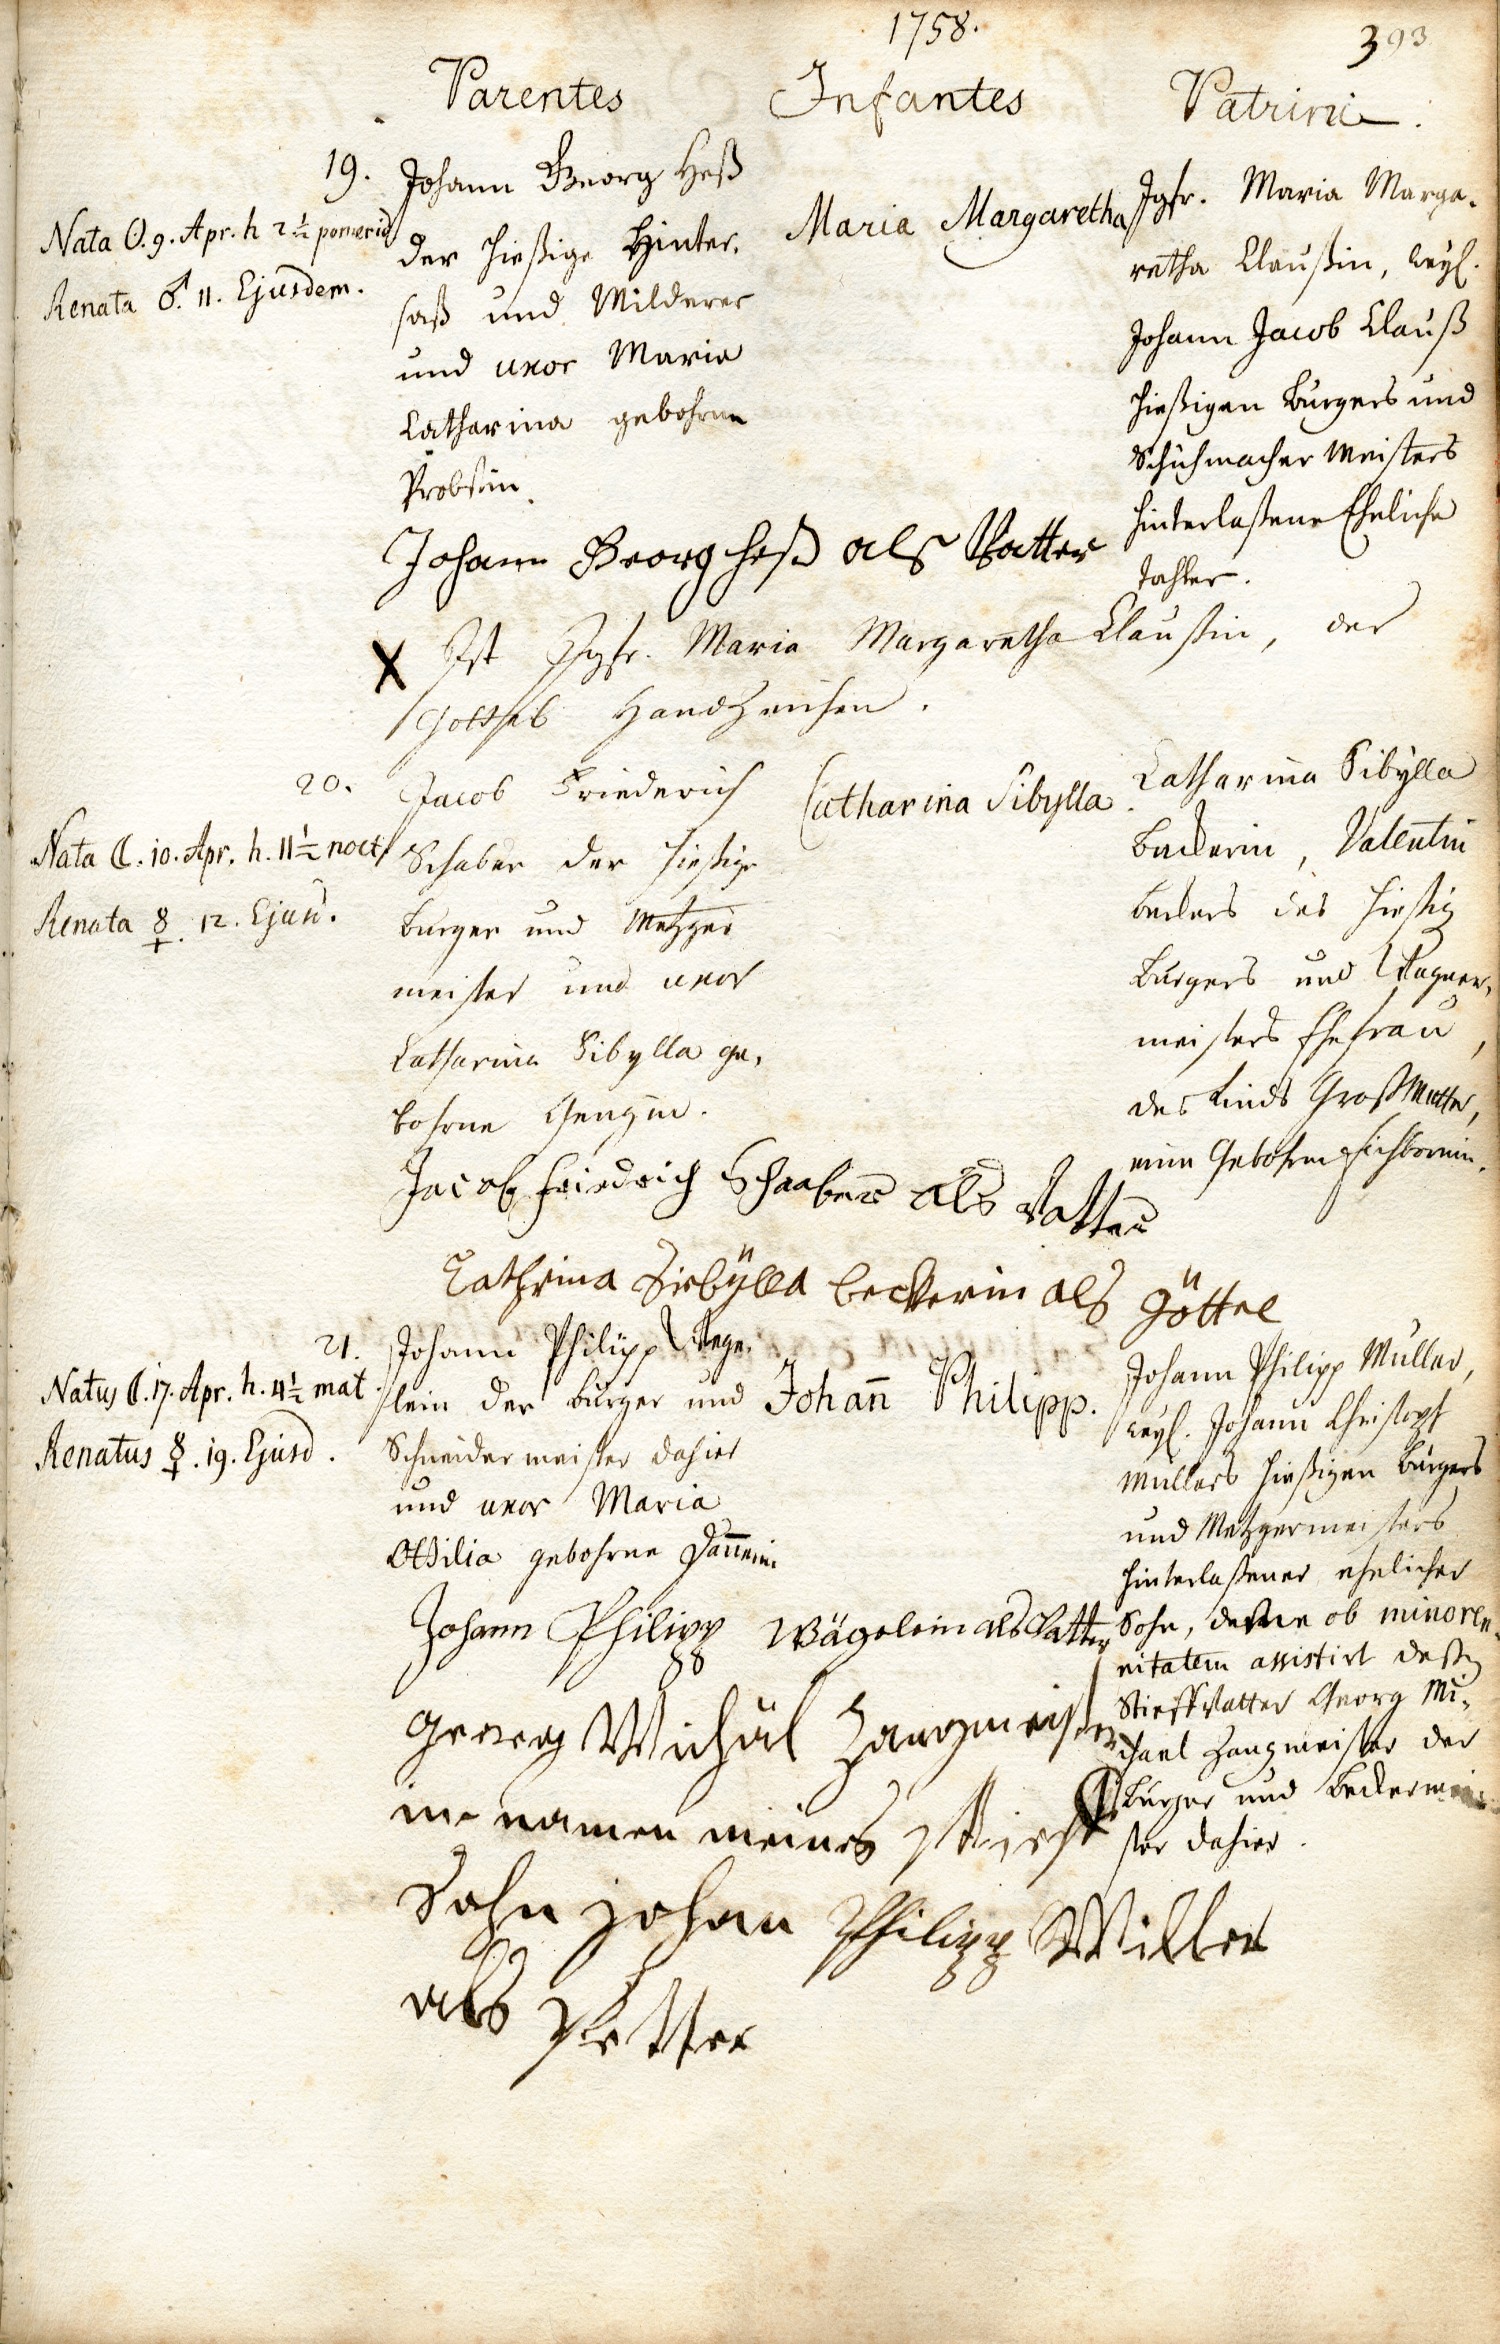 1758.
393
Parentes Infantes Patrini.
19.
Nata ☉. 9. Apr. h 2 ½ pomerid
Renata ♂. 11. Ejusdem.
Johann Georg Heß
der hießige Hinter-
saß und Milderer
und uxor Maria
Catharina gebohrne
Probstin.
Maria Margaretha
Jgfr. Maria Marga-
retha Claußin, weyl.
Johann Jacob Clauß
hießigen Burgers und
Schuhmacher Meisters
hinterlaßene Eheliche
Tochter.
Johann Georg Heß als Vatter
X Ist Jgfr. Maria Margaretha Claußin, der
Gothel Handzeichen.
20.
Nata ☾. 10. Apr. h. 11 ½ noct.
Renata ☿. 12. Ejusd.
Jacob Friederich
Schaber der hießige
Burger und Metzger
meister und uxor
Catharina Sibylla ge-
bohrne
Catharina Sibylla.
Catharina Sibylla
Beckerin, Valentin
Beckers des hießig
Burgers und Wagner-
meisters Ehefrau,
des Kinds GroßMutter,
eine Gebohrne Eichbornin.
Jacob Friedrich Schaaber als Vatter
Cathrina Siebÿlla beckerin als Göttel
21.
Natus ☾. 17. Apr. h. 4 ½ mat.
Renatus ☿. 19. Ejusd.
Johann Philipp Wege-
lein der Burger und
Schneidermeister dahier
und uxor Maria
Ottilia gebohrne Dan̄erin
Johan̄ Philipp.
Johann Philipp Müller,
weyl. Johann Christoph
Müllers hießigen Burgers
und Metzgermeisters
hinterlaßener ehelicher
Sohn, deme ob minoren-
nitatem assistirt deßen
Stieffvatter Georg Mi-
chael Zangmeister der
Burger und Beckermei-
ster dahier.
Johann Philipp Wägelein als Vatter
Georg Michäl Zangmeister
im namen meines stief
Sohn johan Philipp Miller
als Petter